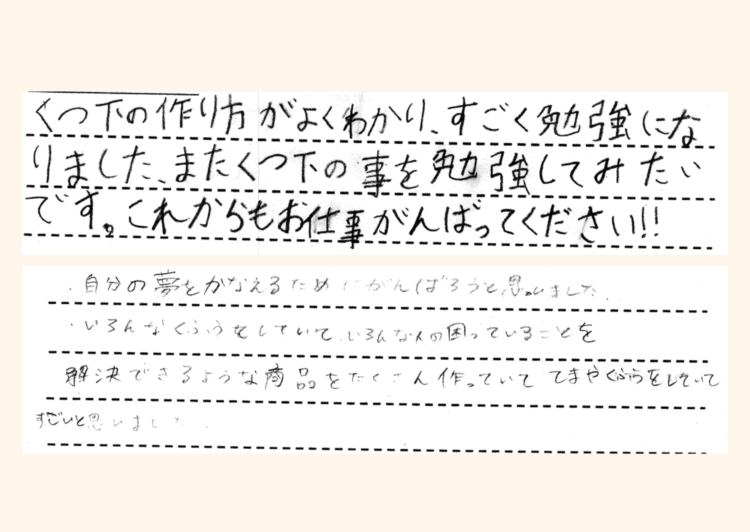 くつ下の作り方がよくわかり、すごく勉強にな
りました、またくつ下の事を勉強してみたい
です。これからもお仕事がんばってください!!
・自分の夢をかなえるためにがんばろうと思いました.
・いろんなくふうをしていて、いろんな人の困っていることを
解決できるような商品をたくさん作っていててまやくふうをしていて
すごいと思いました.